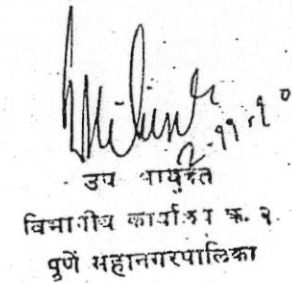 २-११-९०
उप आयुक्त
विभागीय कार्यालय क्र. २
पुणें महानगरपालिका